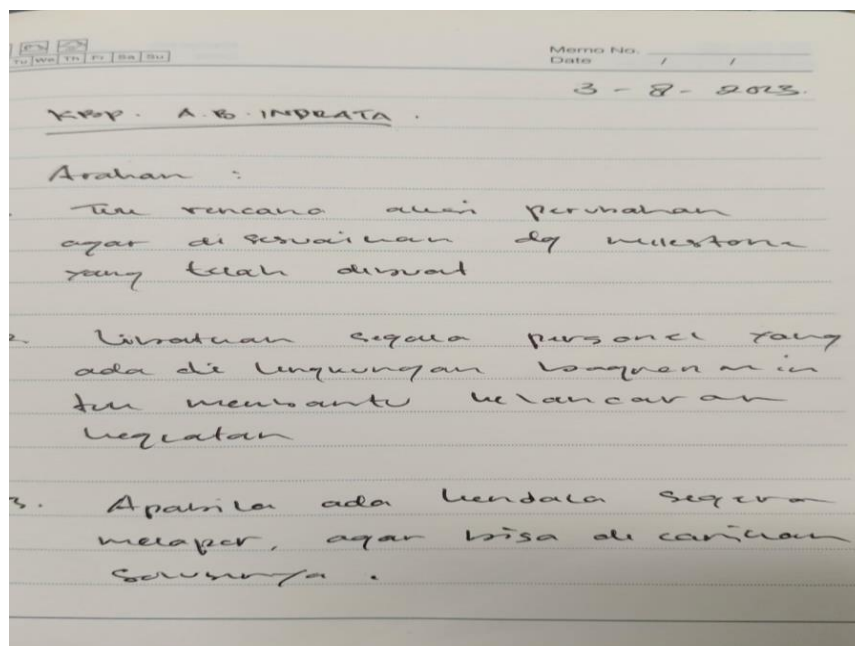 Tu We Th Fr Sa Su
Memo No.
Date / /
3 - 8 - 2023.
KBP. A.B. INDRATA.
Arahan :
Tuk rencana aksi perubahan
agar di sesuaikan dg milestone
yang telah dibuat
2. Libatkan segala personel yang
ada di lingkungan bagrenmin
tuk membantu kelancaran
kegiatan
3. Apabila ada kendala segera
melapor, agar bisa di carikan
solusinya.